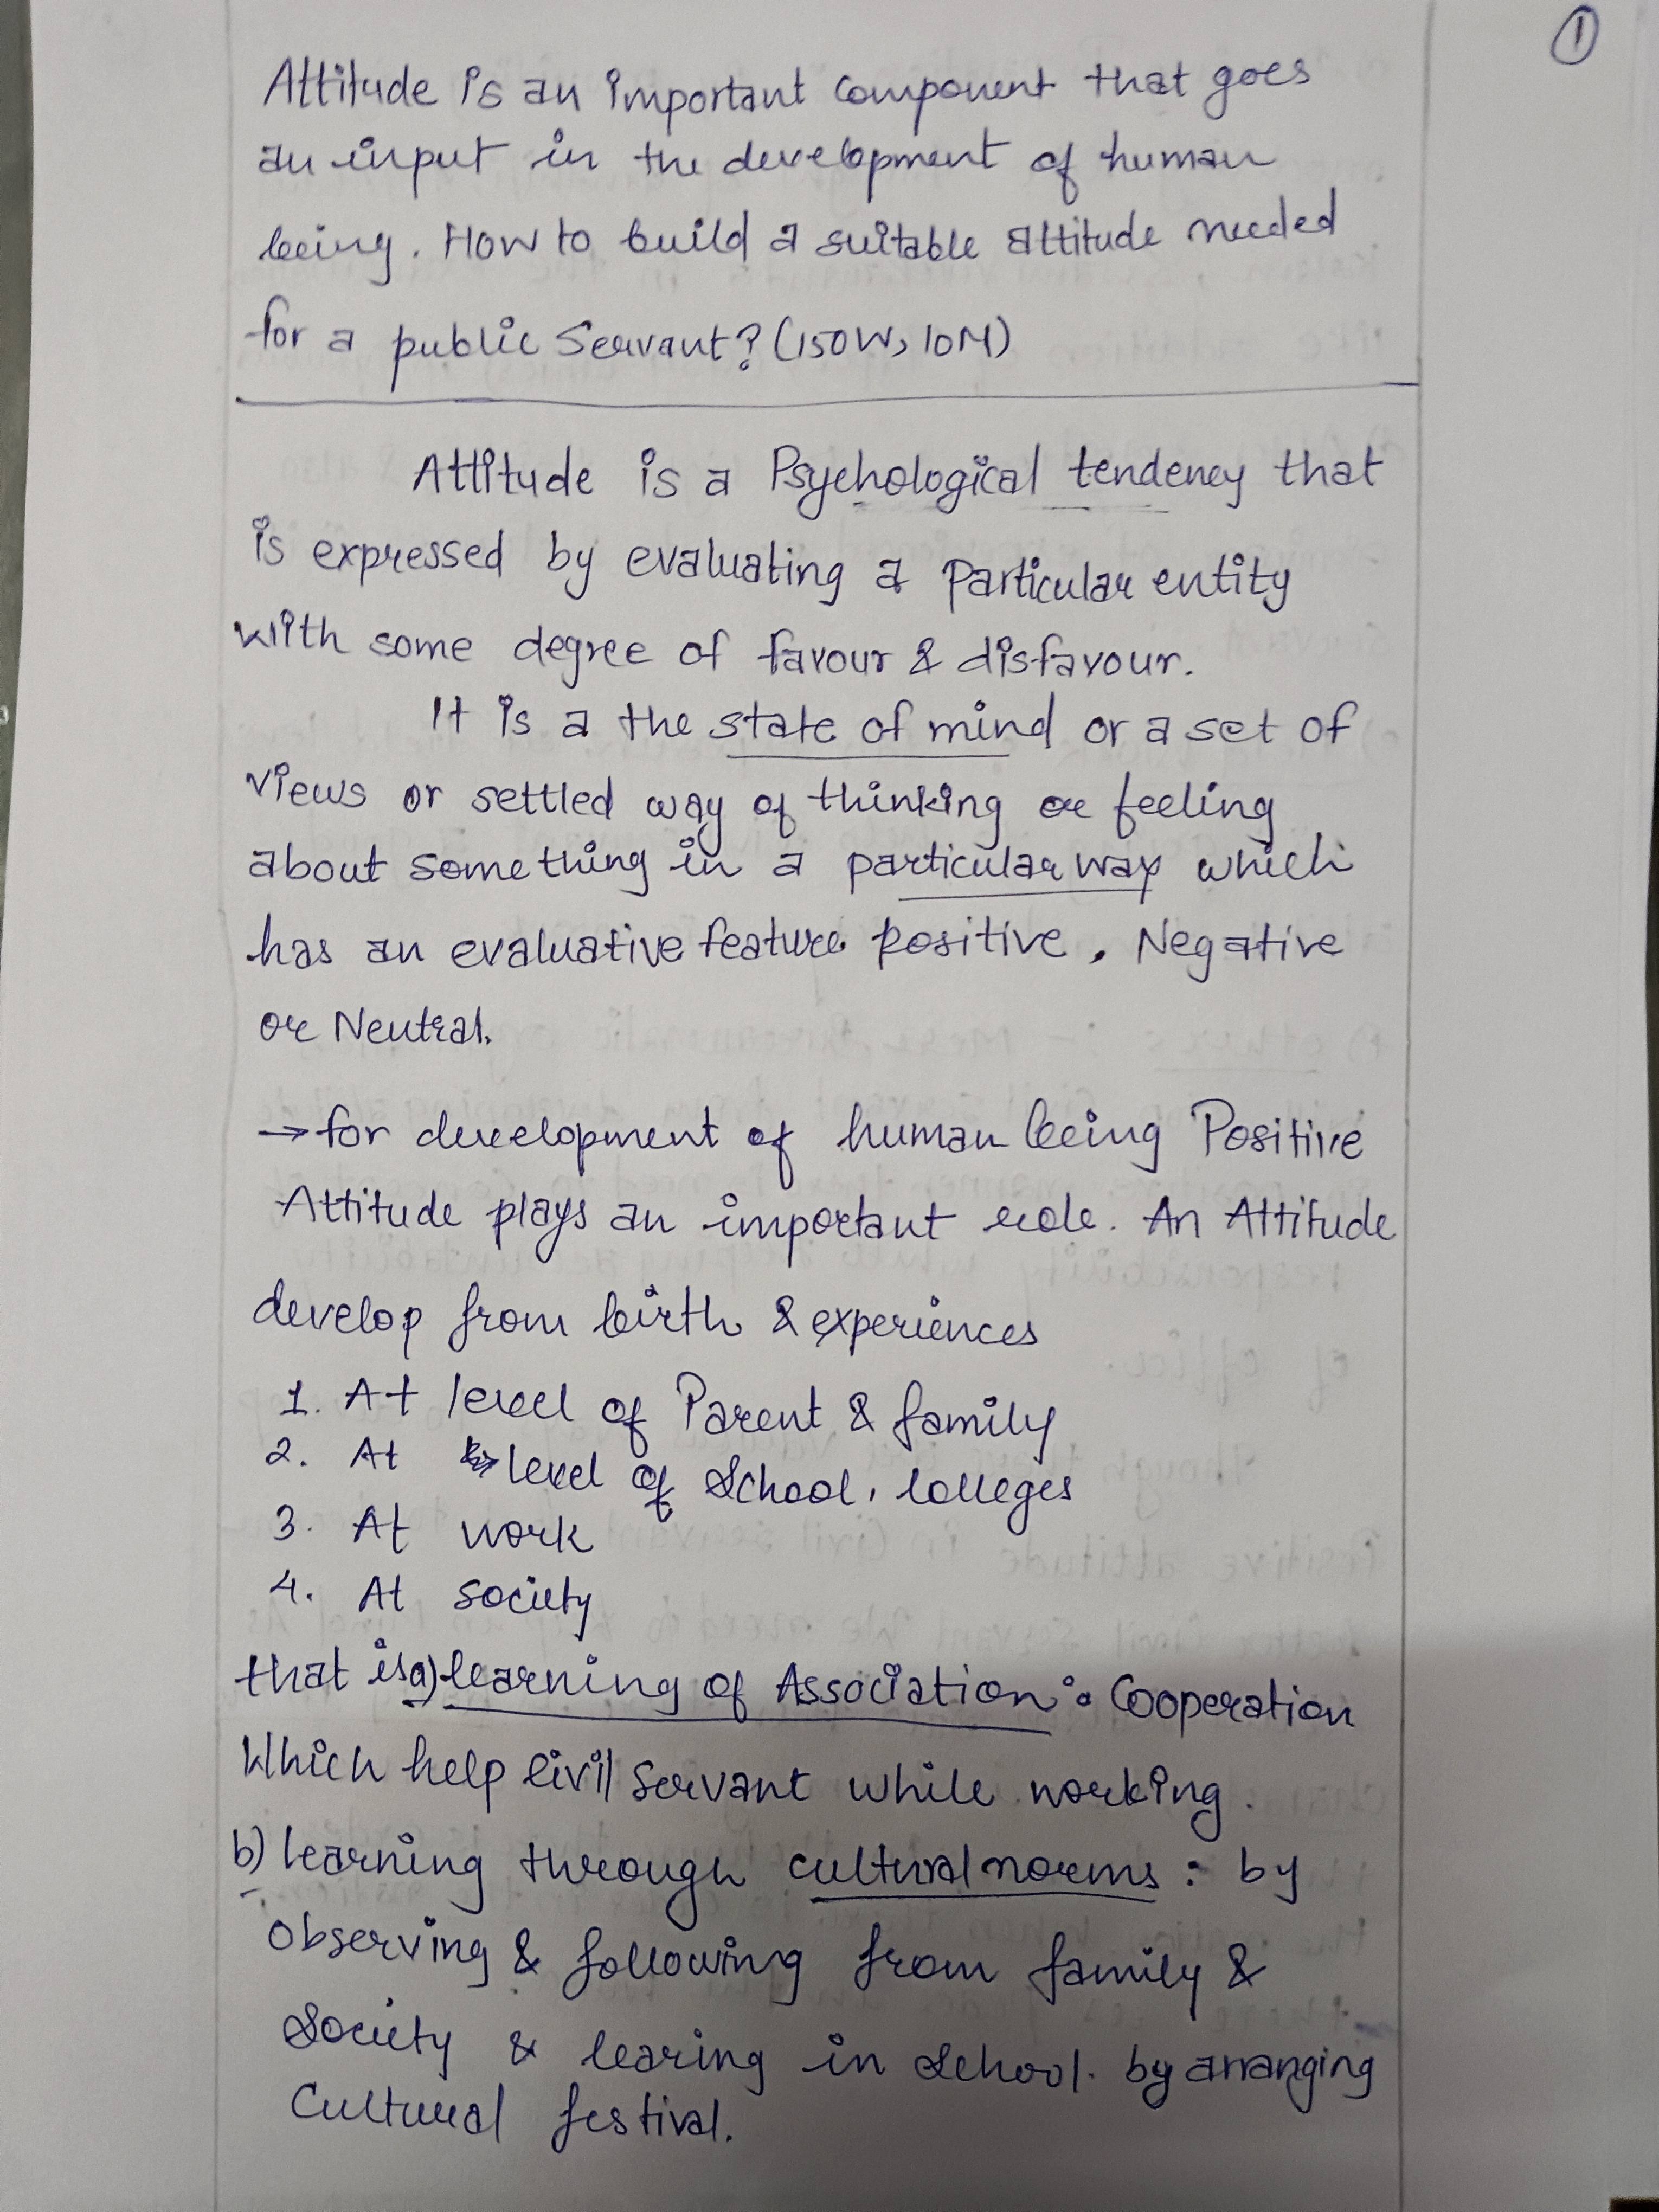 1
Attitude is an important component that goes
an input in the development of human
being. How to build a suitable attitude needed
for a public Servant? (150W, 10M)
Attitude is a Psychological tendency that
is expressed by evaluating a particular entity
with some degree of favour & disfavour.
It is a the state of mind or a set of
views or settled way of thinking or feeling
about something in a particular way which
has an evaluative feature positive, Negative
or Neutral.
→ for development of human being Positive
Attitude plays an important role. An Attitude
develop from birth & experiences
1. At level of Parent & family
2. At level of School, Colleges
3. At work
4. At society
that is a) learning of Association : Cooperation
Which help Civil Servant while working.
b) learning through cultural norms : by
observing & following from family &
Society & learing in School. by arranging
Cultural festival.